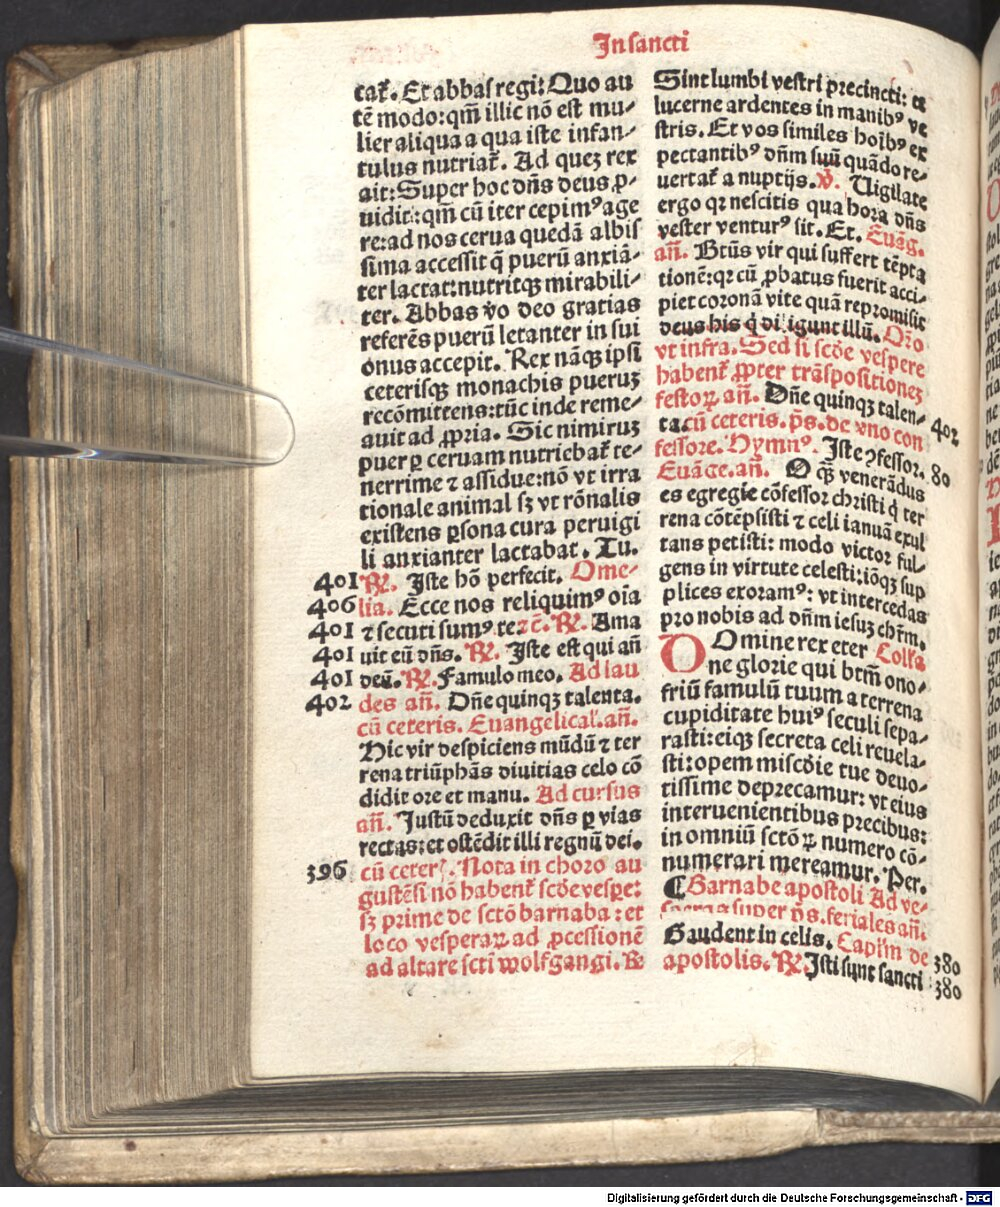 In sancti
tat᷒. Et abbas regi: Quo au
tē modo: qm̄ illic nō est mu-
lier aliqua a qua iste infan-
tulus nutriat᷒. Ad quez rex
ait: Super hoc dn̄s deus ꝓ-
uidit: qm̄ cū iter cepimꝰ age
re: ad nos cerua quedā albis
sima accessit q̄ puerū anxiā-
ter lactat: nutritqꝫ mirabili-
ter. Abbas v̄o deo gratias
referēs puerū letanter in sui
onus accepit. Rex nāqꝫ ipsi
ceterisqꝫ monachis pueruz
recōmittens: tūc inde reme-
auit ad ꝓpria. Sic nimiruz
puer ꝑ ceruam nutriebat᷒ te-
nerrime ⁊ assidue: nō vt irra
tionale animal sꝫ vt rōnalis
existens ꝑsona cura peruigi
li anxianter lactabat. Tu.
401 ℟. Iste hō perfecit. Ome-
406 lia. Ecce nos reliquimꝰ oīa
401 ⁊ secuti sumꝰ te ⁊c̄. ℟. Ama
401 uit eū dn̄s. ℟. Iste est qui an̄
401 deū. ℟. Famulo meo. Ad lau
402 des an̄. Dn̄e quinqꝫ talenta.
cū ceteris. Euangelical᷒. an̄.
Hic vir despiciens mūdū ⁊ ter
rena triūphās diuitias celo cō
didit ore et manu. Ad cursus
an̄. Iustū deduxit dn̄s ꝑ vias
rectas: et ostēdit illi regnū dei.
396 cū ceter᷒. Nota in choro au
gustēsi nō habent᷒ scd̄e vespe:
sꝫ prime de sctō barnaba: et
loco vesperaꝝ ad ꝓcessionē
ad altare scti wolfgangi. ℟
Sint lumbi vestri precincti: et
lucerne ardentes in manibꝰ ve
stris. Et vos similes hoībꝰ ex
pectantibꝰ dn̄m suū quādo re-
uertat᷒ a nuptijs. ℣. Uigilate
ergo qꝛ nescitis qua hora dn̄s
vester venturꝰ sit. Et. Euāg.
an̄. Btūs vir qui suffert tēpta
tionē: qꝛ cū ꝓbatus fuerit acci-
piet coronā vite quā repromisit
deus his q̇ diligunt illū. Or̄o
vt infra. Sed si scd̄e vespere
habent᷒ ꝓpter trāspositionez
festoꝝ an̄. Dn̄e quinqꝫ talen- 402
ta cū ceteris. ps̄. de vno con
fessore. Hymnꝰ. Iste ꝯfessor. 80
Euāge. an̄. O qꝫ venerādus
es egregie cōfessor christi q̇ ter
rena cōtēpsisti ⁊ celi ianuā exul
tans petisti: modo victor ful-
gens in virtute celesti: iōqꝫ sup
plices exoramꝰ: vt intercedas
pro nobis ad dn̄m iesuz chr̄m.
Domine rex eter Coll̄a
ne glorie qui btm̄ ono-
friū famulū tuum a terrena
cupiditate huiꝰ seculi sepa-
rasti: eiqꝫ secreta celi reuela-
sti: opem miscd̄ie tue deuo-
tissime deprecamur: vt eius
interuenientibus precibus:
in omniū sctōꝝ numero cō-
numerari mereamur. Per.
¶ Barnabe apostoli Ad ve-
spera super ps̄. feriales an̄.
Gaudent in celis. Capl̄m de 380
apostolis. ℟. Isti sunt sancti 380
Digitalisierung gefördert durch die Deutsche Forschungsgemeinschaft - DFG